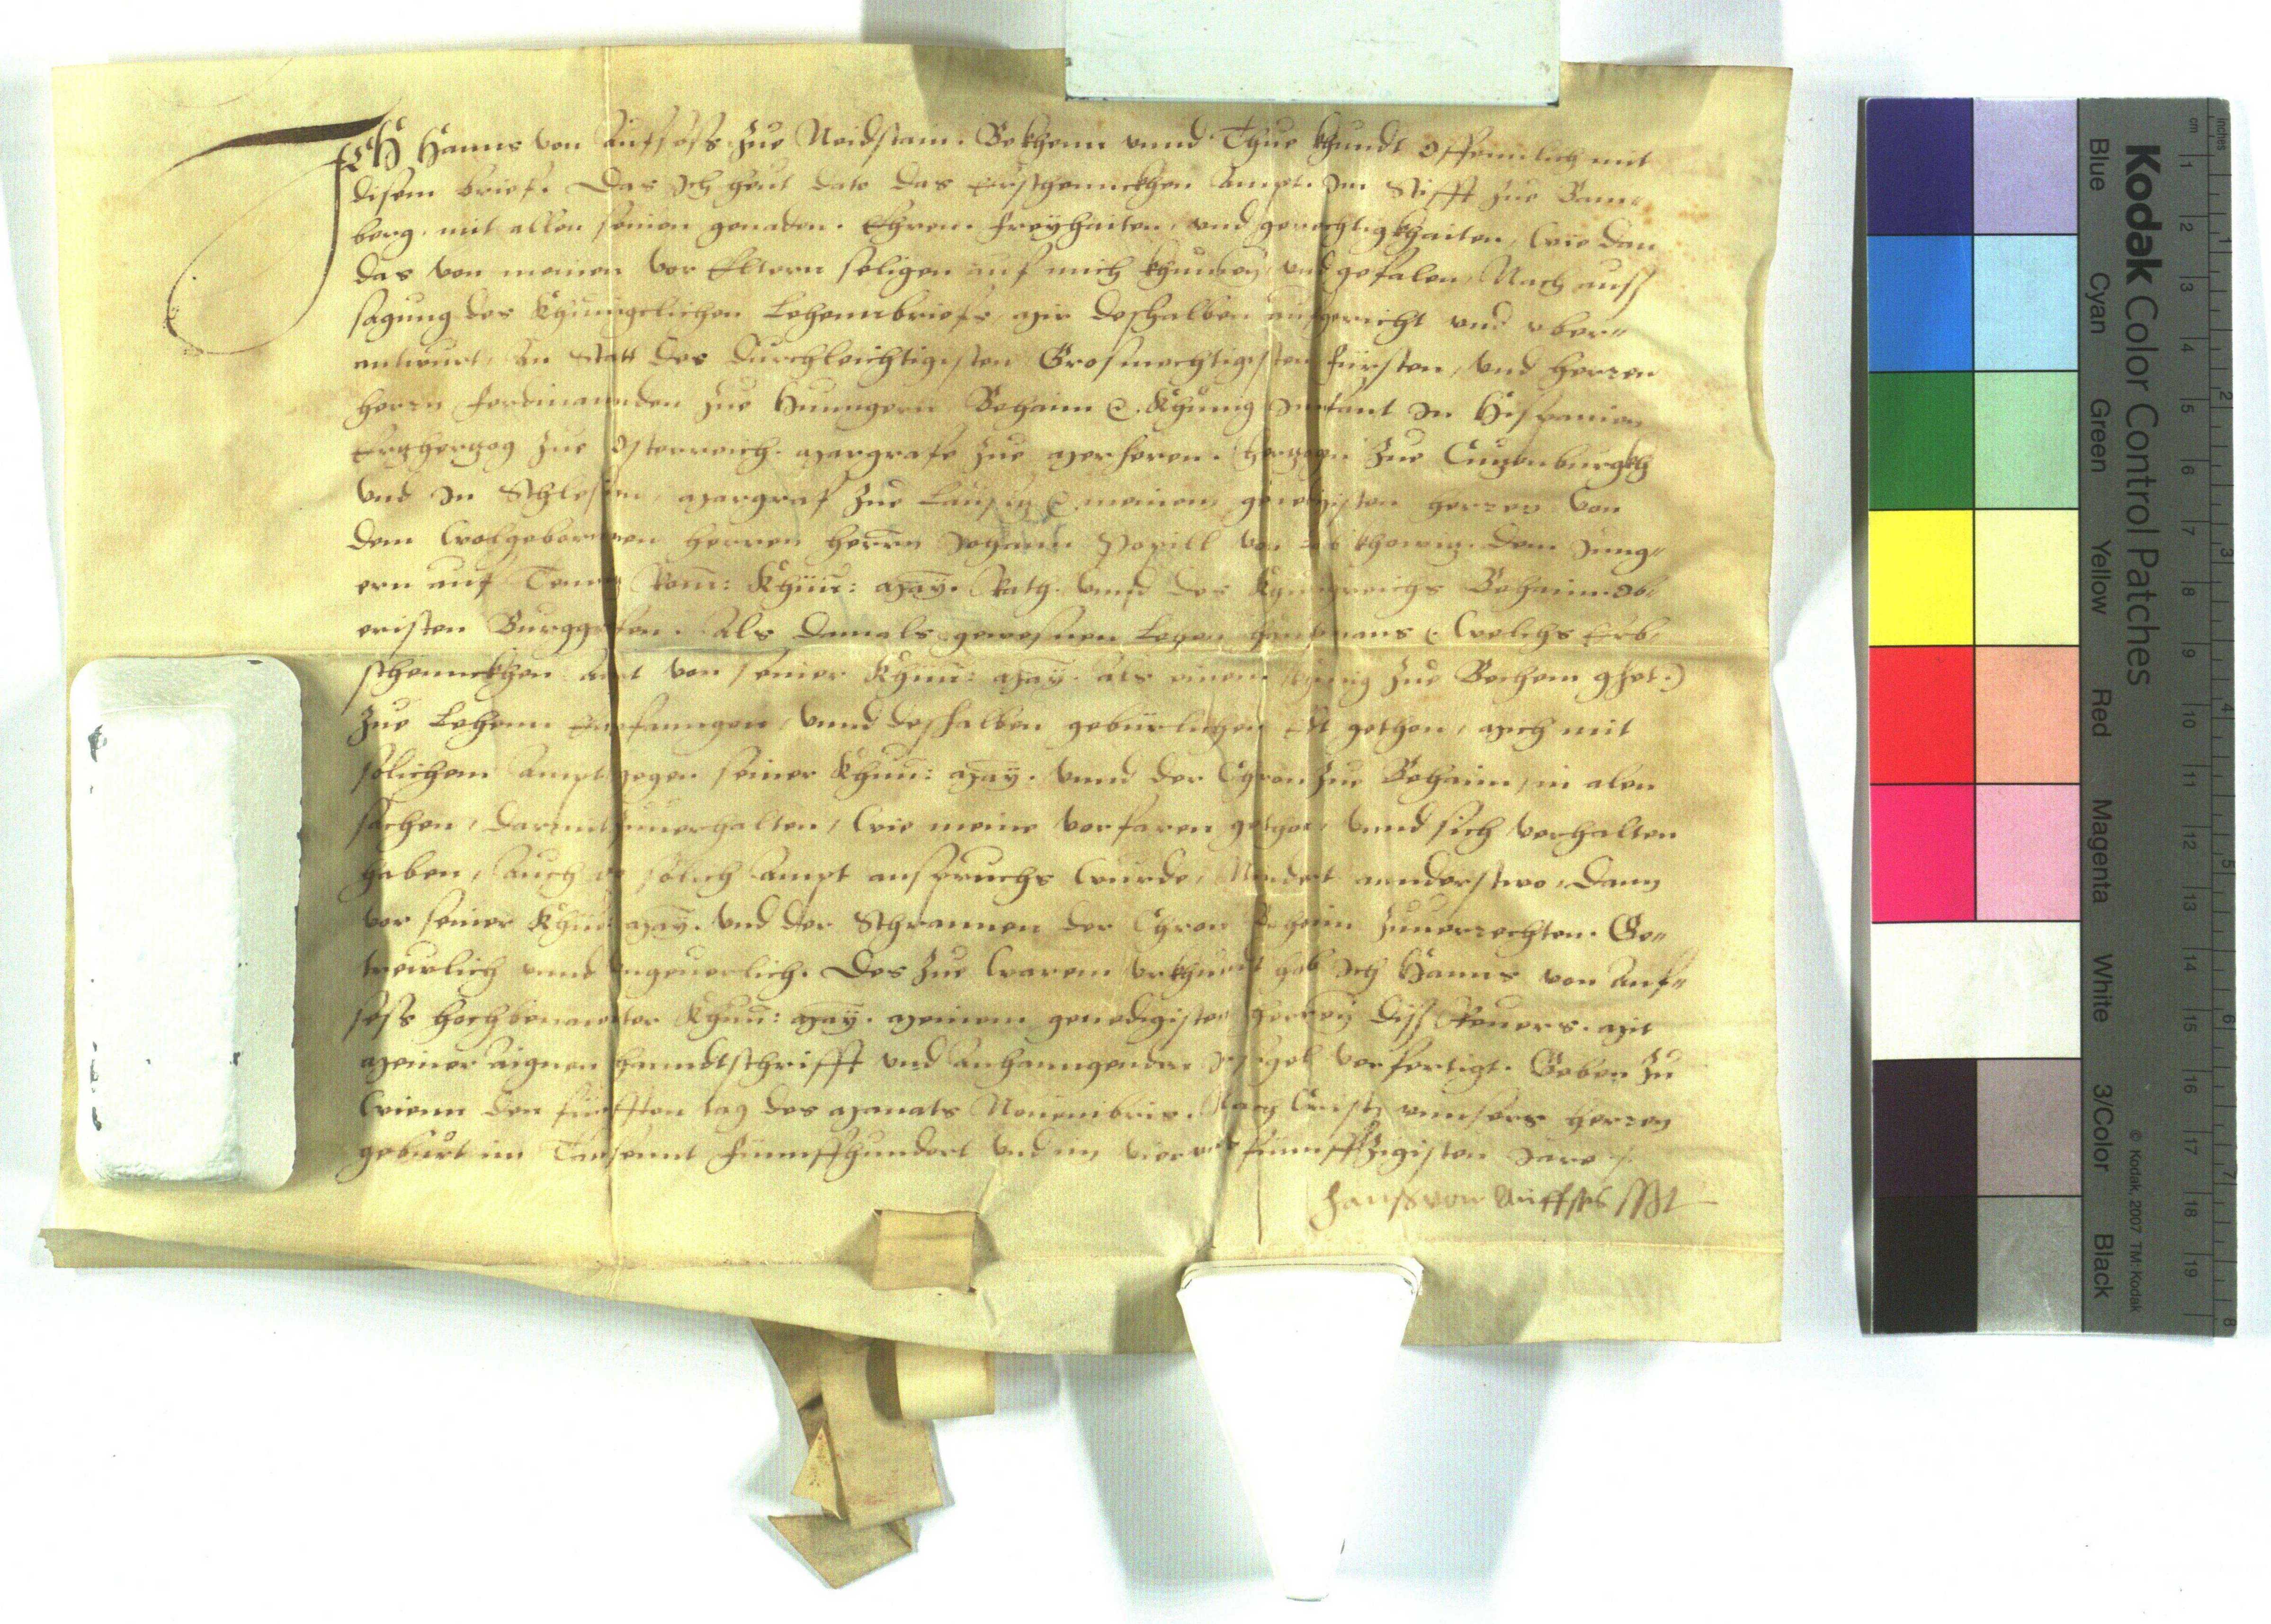 ICH Hanns von Aufsess zue Neidstain. Bekhenn vnnd Thue khundt Offennlich mit
disem brief. Das Ich heut dato das Erbschennckhen Ampt. Im Stifft zue Bam-
berg. mit allen seinen genaden. Ehren. freyhaiten, vnd gerechtigkhaiten, wie dan
das von meinen vor Eltern seligen auf mich khumen vnd gefalen, Nach auss
sagung des Khunigelichen Lehennbriefs, mir deshalben aufgericht vnd vber-
antwurt, An Statt des durchleichtigisten Grosmechtigisten fürsten, vnd herren
herrn ferdinannden zue Hunngern Behaim &. Khunig Infant In Hispanien
Ertzhertzog zue Osterreich. Margrafe zue Merheren. Hertzogen zue Lutzenburgkh
vnd In Schlesien, Margraf zue Lausitz &. meinem genedigisten herren von
dem wolgebornnen herren herrn Johann Popill von dem Jung-
ern auf Rom: Khün: May. Rath. vnnd des Khunigreichs Behaim Ob-
eristen Burggrafen. Als damals gewesnen Lehen haubtmans (welichs Erb-
schennckhen Amt von seiner Khün: May. als einem Khunig zue Behem )
zue Lehenn Empfanngen, vnnd deshalben gebürlichen Eit gethon, mich mit
solichem Ampt gegen seiner Khün: May. vnnd der Chron zue Behaim, in alen
sachen, darmit zuuerhalten, wie meine vorfaren gethon, vnnd sich verhalten
haben, Auch so solich Ampt anspruchs wurde, Nindert annderstwo, dann
vor seiner Khün: May. vnd der Schrannen der Chron Behaim zuuerrechten. Ge-
trewlich vnnd Vngeuerlich. Des zue warem vrkhundt hab Ich Hanns von Auf-
sess Hochbenanter Khün: May. Meinem genedigisten herren diss Reuers. Mit
Meiner aignen Hanndtschrifft vnd Anhanngenden Insigel verfertigt. Geben zu
Wienn den fünfften tag des Monats Nouembris. Nach Cristy vnnsers herren
geburt im Tausennt fünnffhundert vnd im vier vnd fünnffzigisten Jare
Hanss von Auffses
Kodak Color Control Patches
Blue Cyan Green Yellow Red Magenta White 3/Color Black
© Kodak, 2007 TM: Kodak
inches 1 2 3 4 5 6 7 8
cm 1 2 3 4 5 6 7 8 9 10 11 12 13 14 15 16 17 18 19